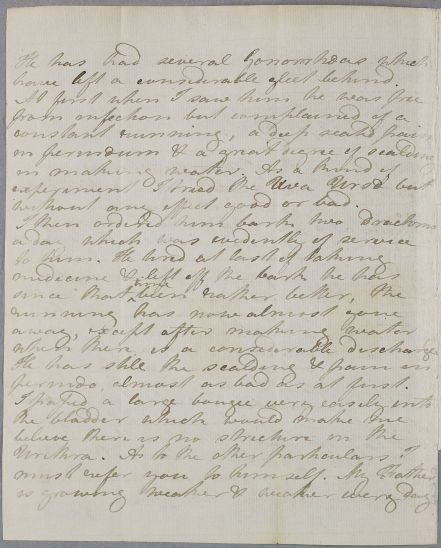 He has had several Gonorrheas which
have left a considerable gleet behind.
At first when I saw him he was free
from infection but complained of a
constant running, a deep seated pain
in perineum & a great degree of scalding
in making water. As a kind of
experiment I tried the Uva Ursi but
without any effect good or bad.
I then ordered him bark two Drachms
a day which was evidently of service
to him. He tired at last of taking
medicine & left off the bark he has
since that time been rather better, the
running has now almost gone
away, except after making water
when there is a considerable discharge
He has still the scalding & pain in
perineo almost as bad as at first.
I passed a large bougee very easily into
the bladder which would make me
believe there is no stricture in the
Urethra. As to the other particulars I
must refer you to himself. My Father
is growing weaker & weaker every day